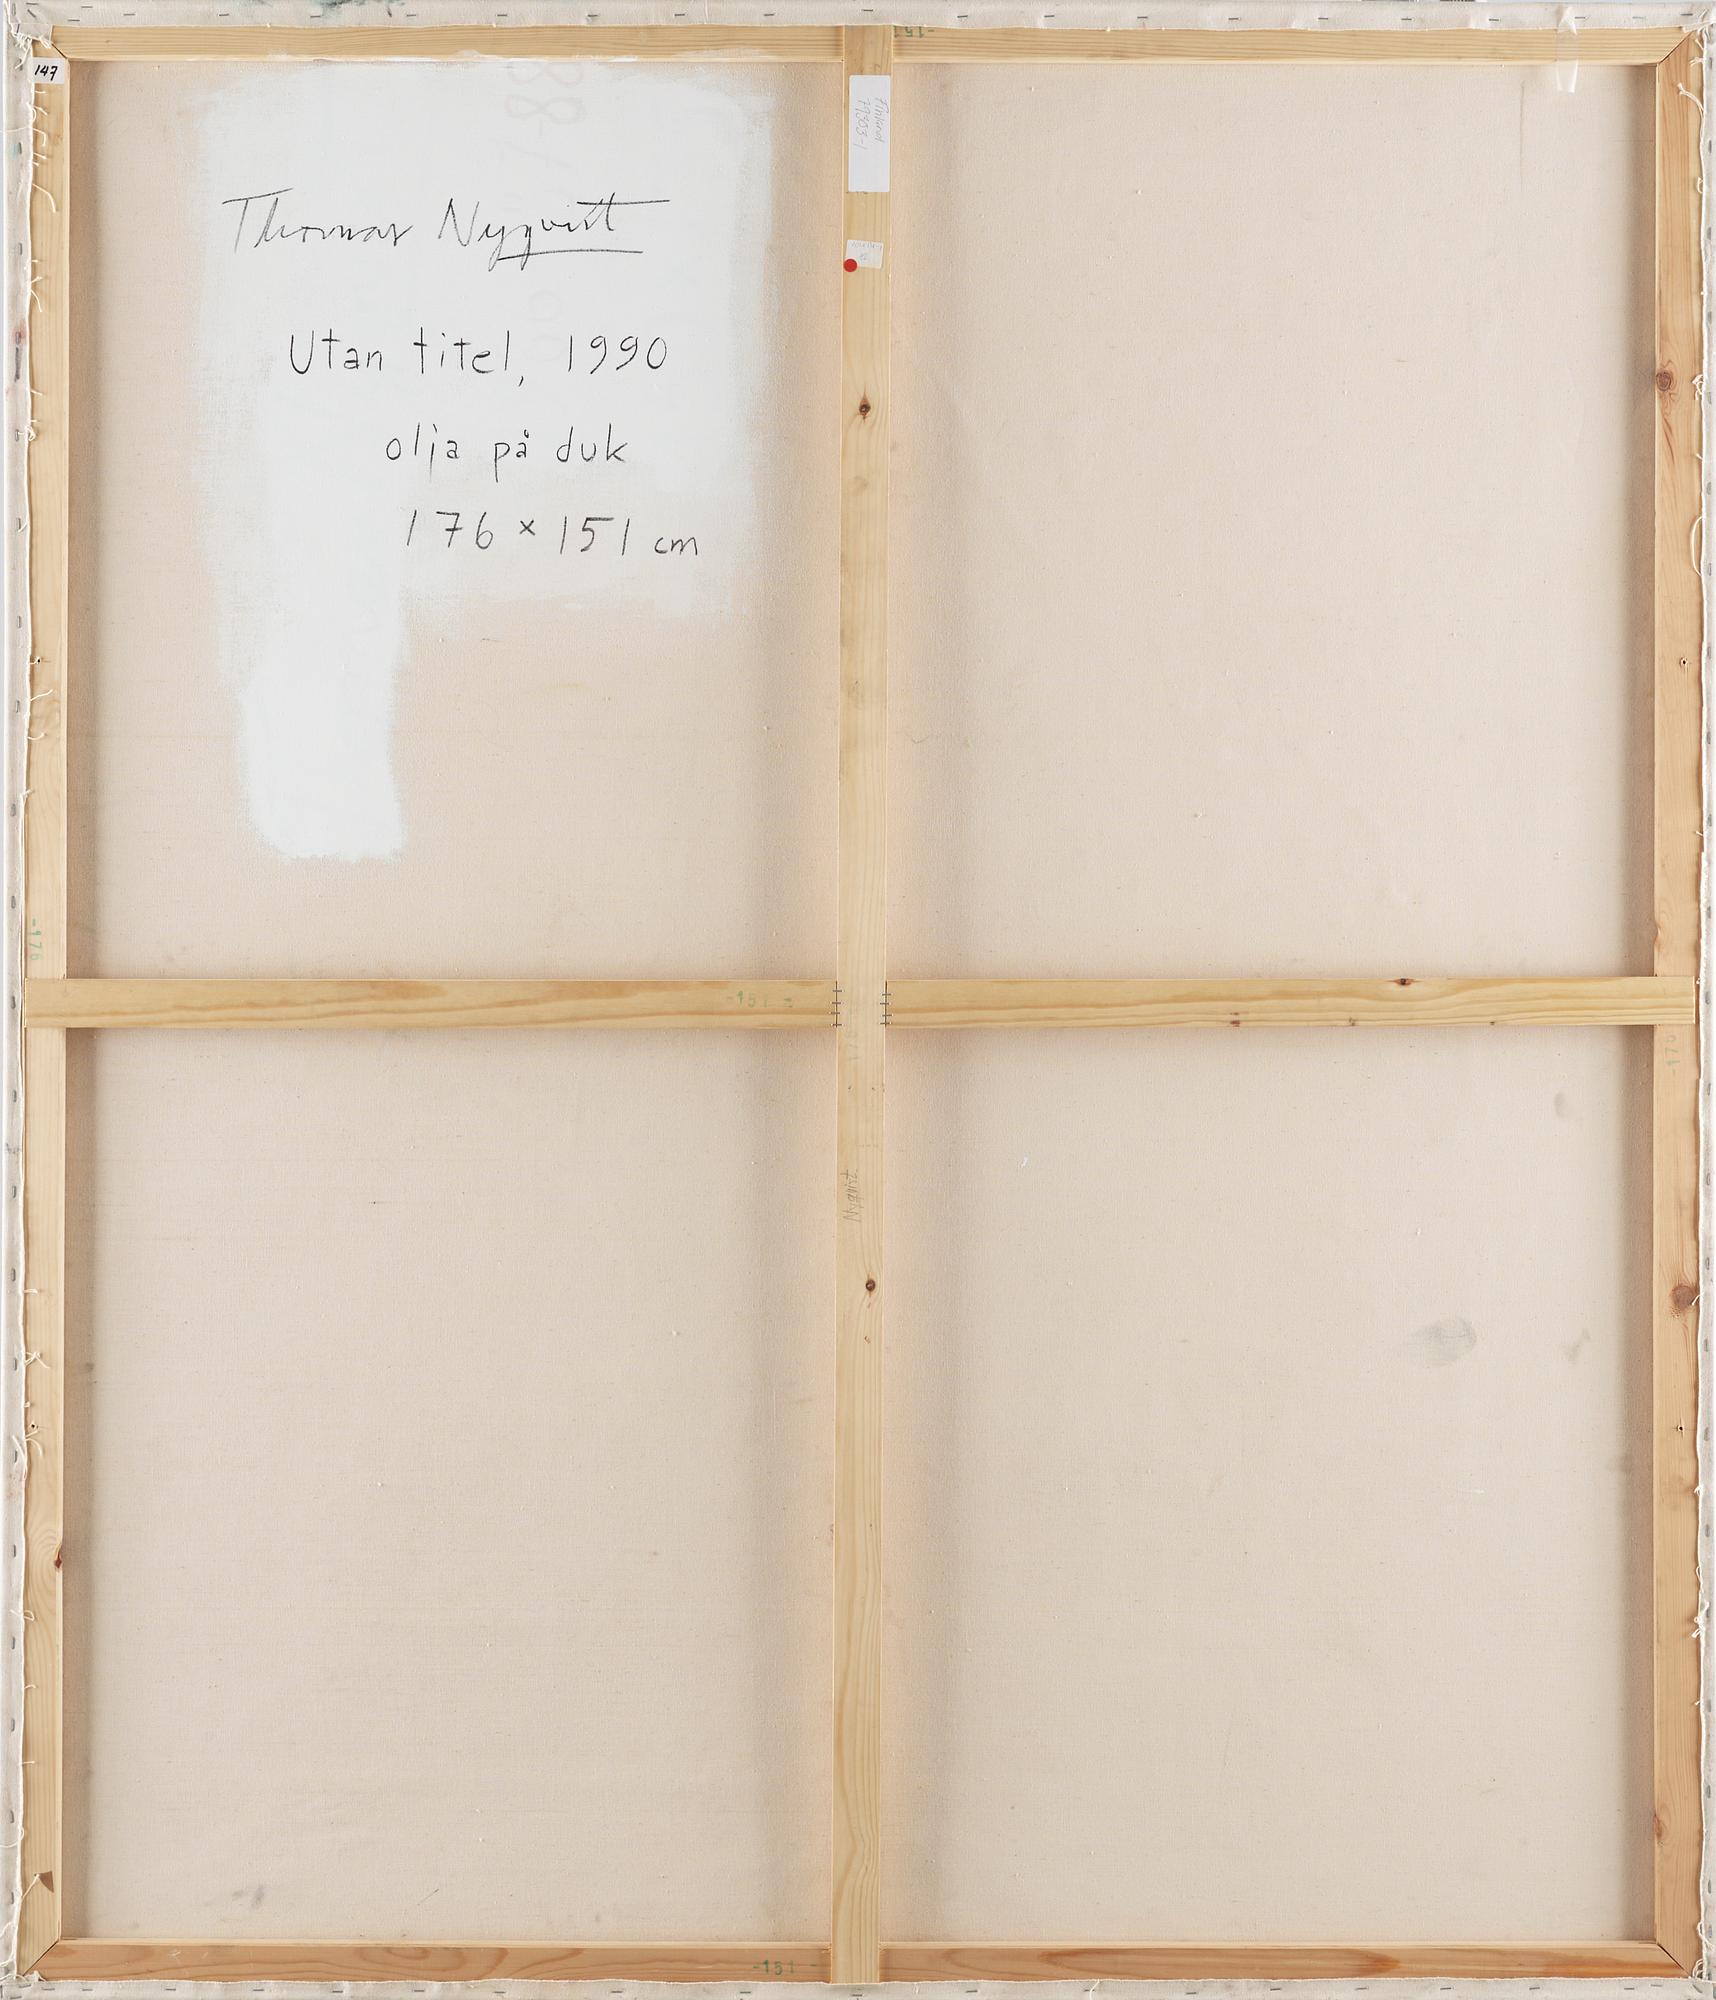 147
Thomas Nyqvist
Utan titel, 1990
olja på duk
176 × 151 cm
-151
79303-1
-176
-151 =
-170
Nyqvist
-151 -